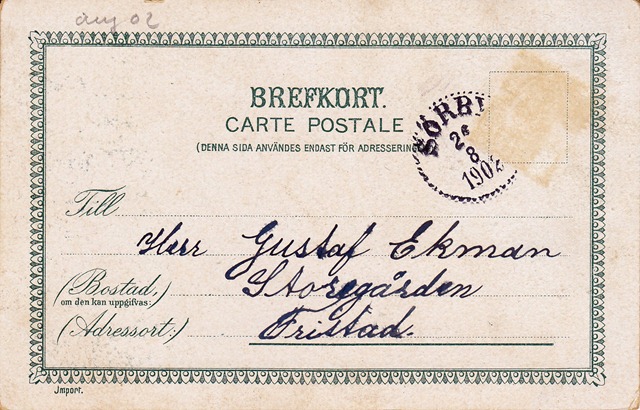 aug 02
BREFKORT.
CARTE POSTALE
(DENNA SIDA ANVÄNDES ENDAST FÖR ADRESSERING
2
8
1902
Till
Herr Gustaf Ekman
(Bostad,) Storegården
om den kan uppgifvas:
(Adressort:) Fristad.
Import.